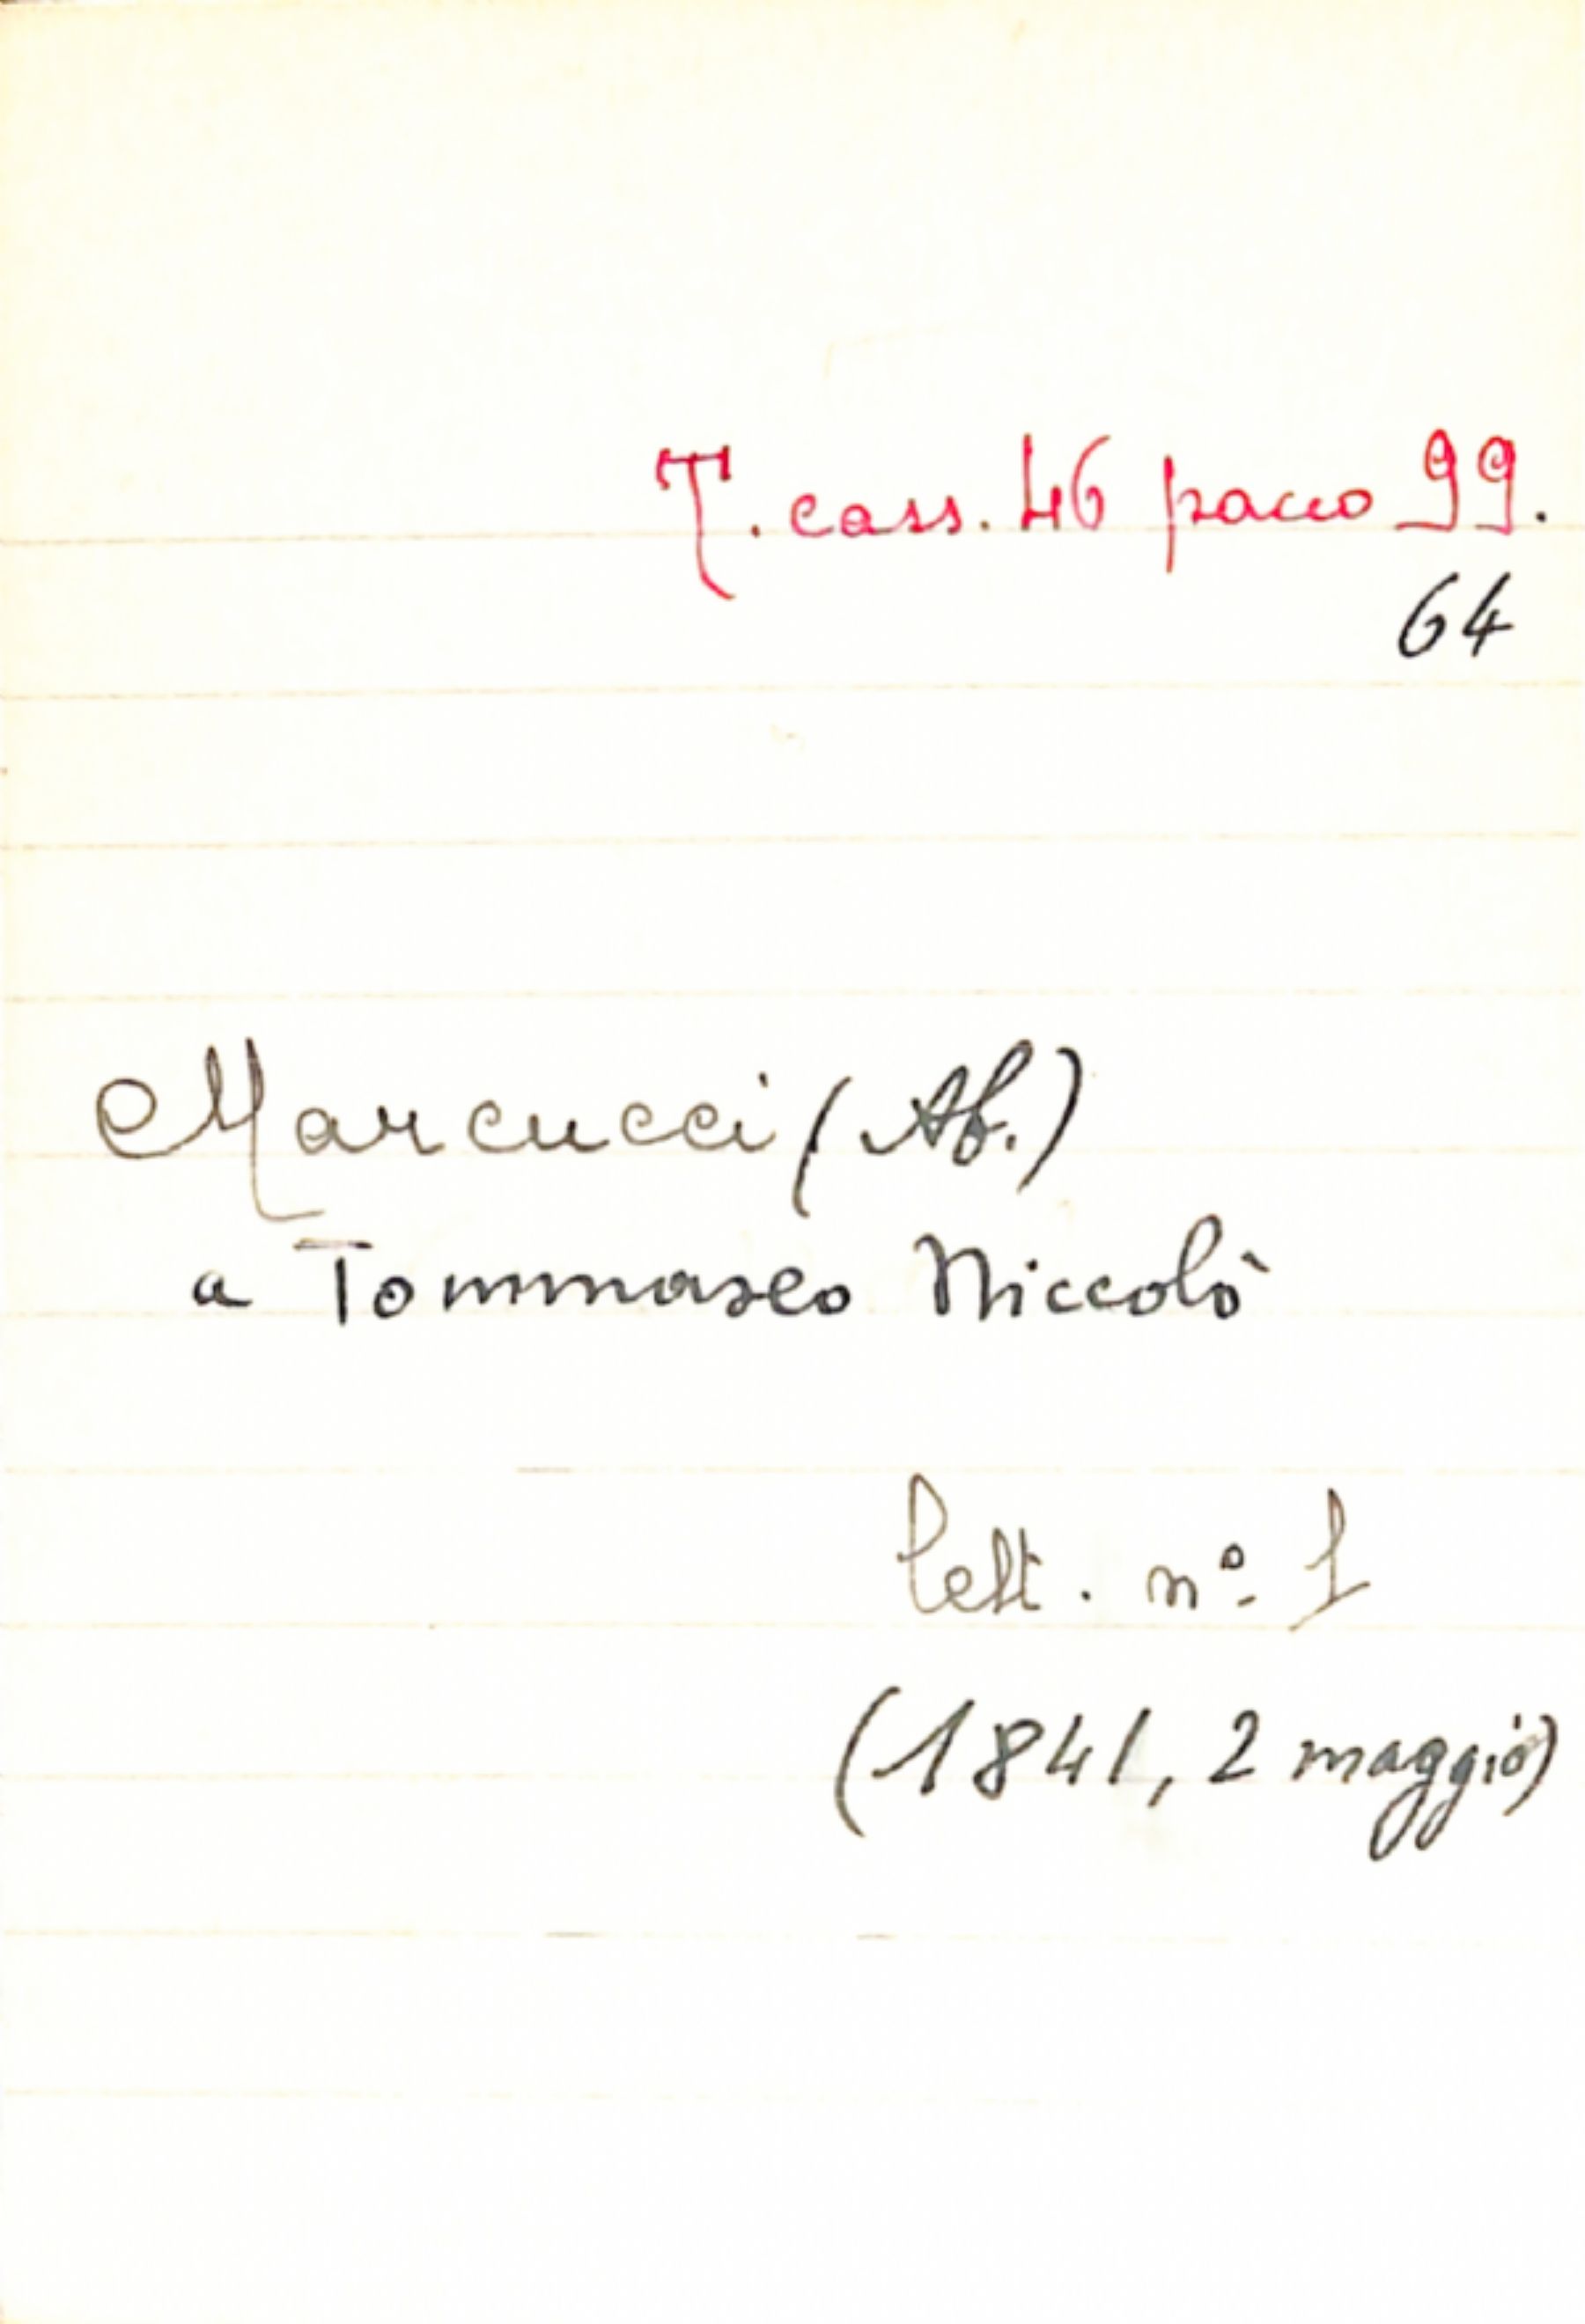 T. cass. 46 pacco 99.
64
Marcucci (Ab.)
a Tommaseo Niccolò
lett. nº 1
(1841, 2 maggio)